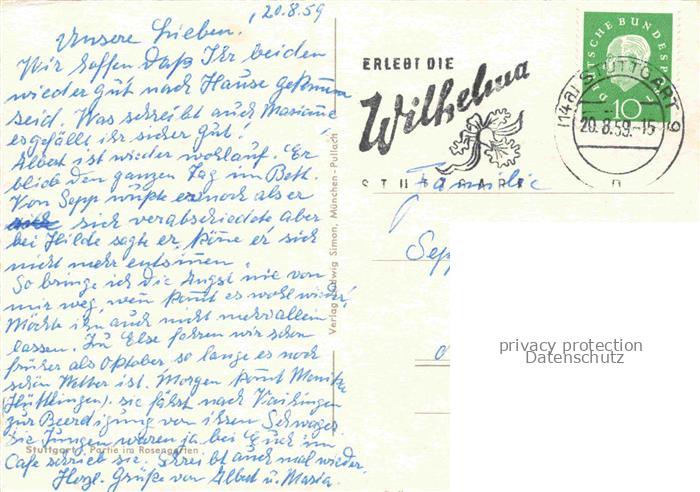 20.8.59
Unsere Lieben.
Wir hoffen daß Ihr beiden
wieder gut nach Hause gekommen
seid. Was schreibt auch Mariane
es gefällt ihr sicher gut!
Albert ist wieder wohlauf. Er
blieb den ganzen Tag im Bett.
Von Sepp wußte er noch als er
sich verabschiedete aber
bei Hilde sagte er, köne er sich
nicht mehr entsinen.
So bringe ich die Angst nie von
mir weg, wen komt es wohl wieder!
Möchte ihn auch nicht mehr allein
lassen. Zu Else fahren wir schon
früher als Oktober so lange es noch
schön Wetter ist. Morgen komt
(Hüttlingen). sie fährt nach Vaihingen
zur Beerdigung von ihren Schwager.
Die Jungen waren ja bei Euch im
Cafe schrieb sie. Schreibt auch mal wieder.
Herzl. Grüße von Albert u. Maria.
Stuttgart Partie im Rosengarten
Verlag Ludwig Simon, München-Pullach
ERLEBT DIE
Wilhelma
STUTTGART
DEUTSCHE BUNDESPOST
10
(14a) STUTTGART 9
20.8.59.-15
n
Familie
Sepp
privacy protection
Datenschutz